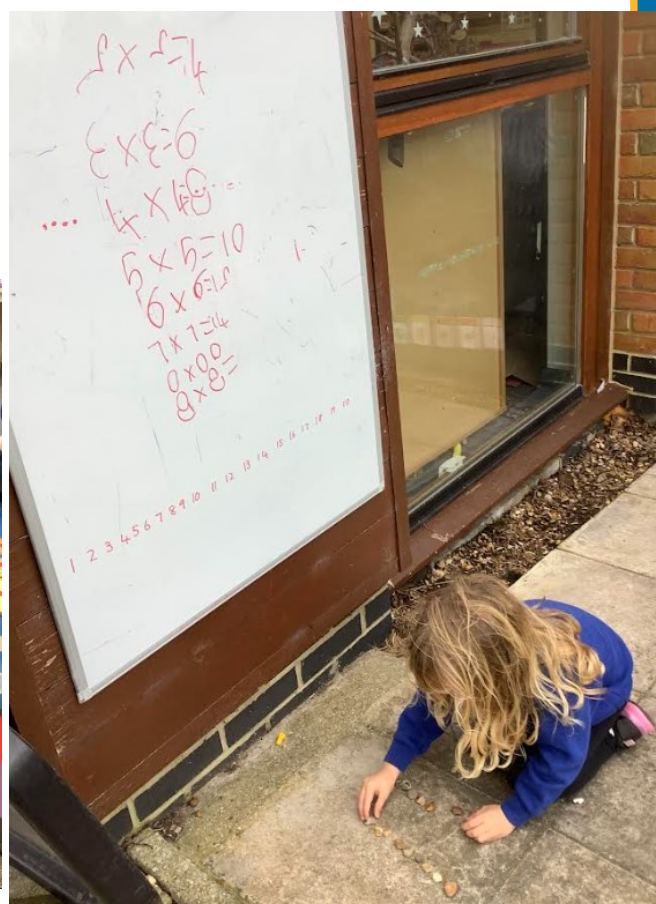 2 x 2=4
3 x 3=6
4 x 4=8
5 x 5=10
6 x 6=12
7 x 7=14
0 x 0 0
8 x 8=
1 2 3 4 5 6 7 8 9 10 11 12 13 14 15 16 17 18 19 20